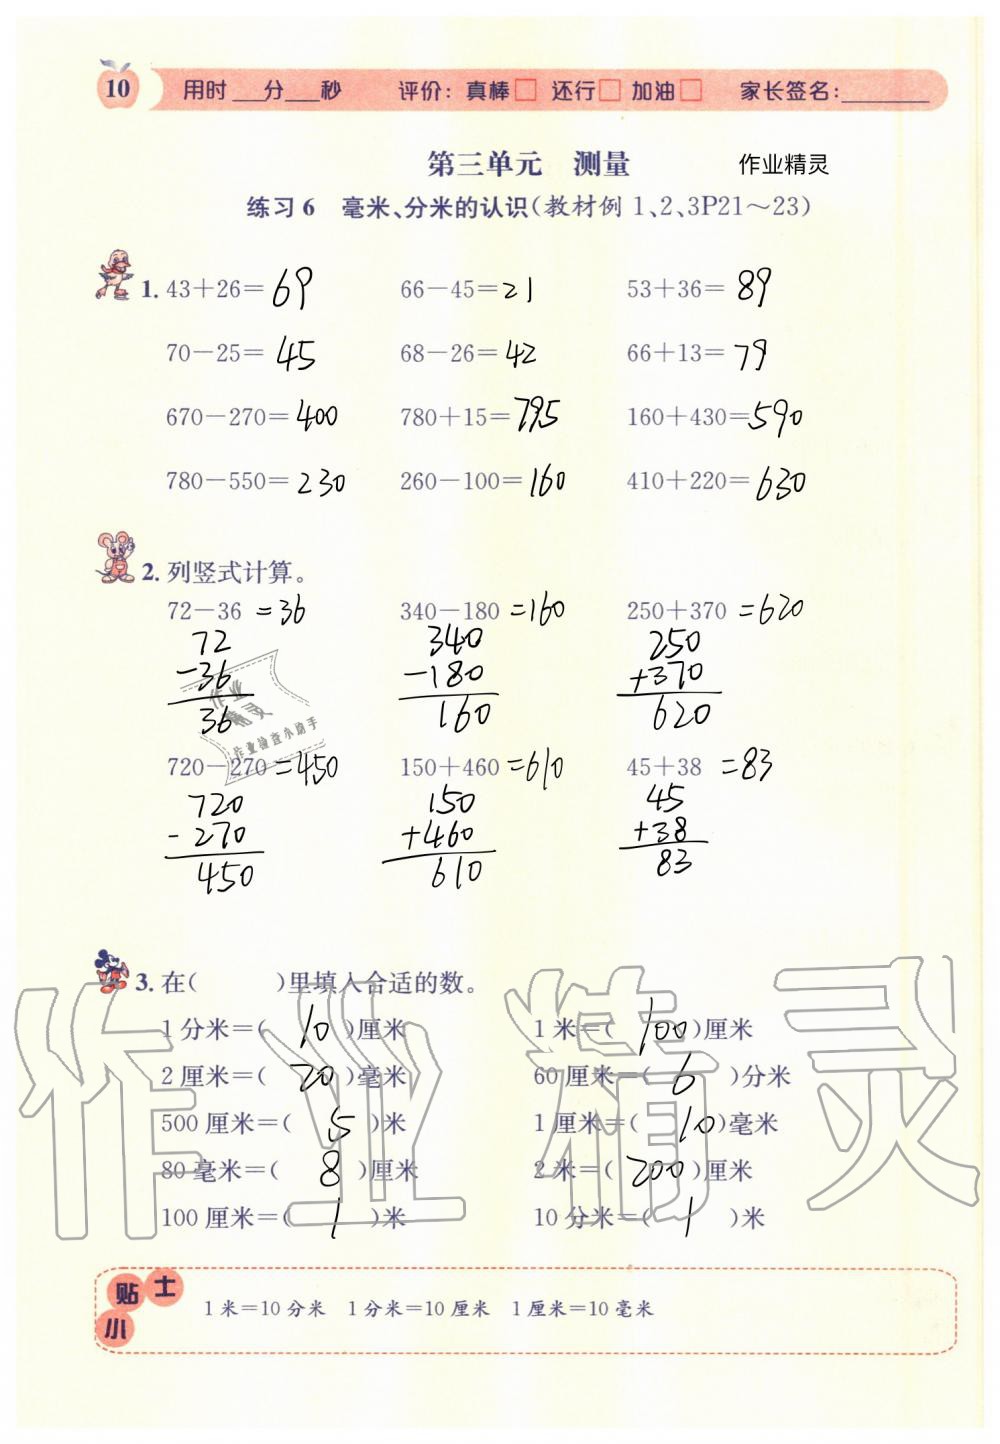 10 用时___分___秒 评价：真棒□ 还行□ 加油□ 家长签名：________
第三单元 测量 作业精灵
练习6 毫米、分米的认识(教材例1、2、3P21～23)
1. 43+26= 69 66-45= 21 53+36= 89
70-25= 45 68-26= 42 66+13= 79
670-270= 400 780+15= 795 160+430= 590
780-550= 230 260-100= 160 410+220= 630
2. 列竖式计算。
72-36 =36 340-180 =160 250+370 =620
72 340 250
-36 -180 +370
36 160 620
作业精灵
作业检查小助手
720-270 =450 150+460 =610 45+38 =83
720 150 45
-270 +460 +38
450 610 83
3. 在( )里填入合适的数。
1分米=( 10 )厘米 1米=( 100 )厘米
2厘米=( 20 )毫米 60厘米=( 6 )分米
500厘米=( 5 )米 1厘米=( 10 )毫米
80毫米=( 8 )厘米 2米=( 200 )厘米
100厘米=( 1 )米 10分米=( 1 )米
作业精灵
小贴士
1米=10分米 1分米=10厘米 1厘米=10毫米